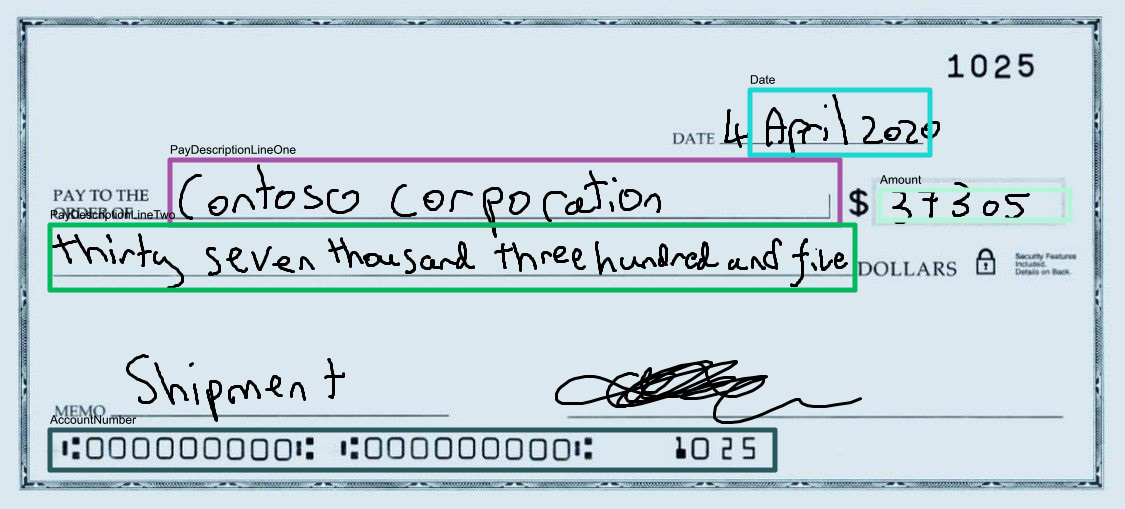 1025
Date
DATE 4 April 2020
PayDescriptionLineOne
PAY TO THE
ORDER OF Contosco corporation
Amount
$ 37305
PayDescriptionLineTwo
thirty seven thousand three hundred and five DOLLARS
Security Features
Included.
Details on Back.
Shipment
MEMO
AccountNumber
⑆000000000⑆ ⑆000000000⑆ 1025